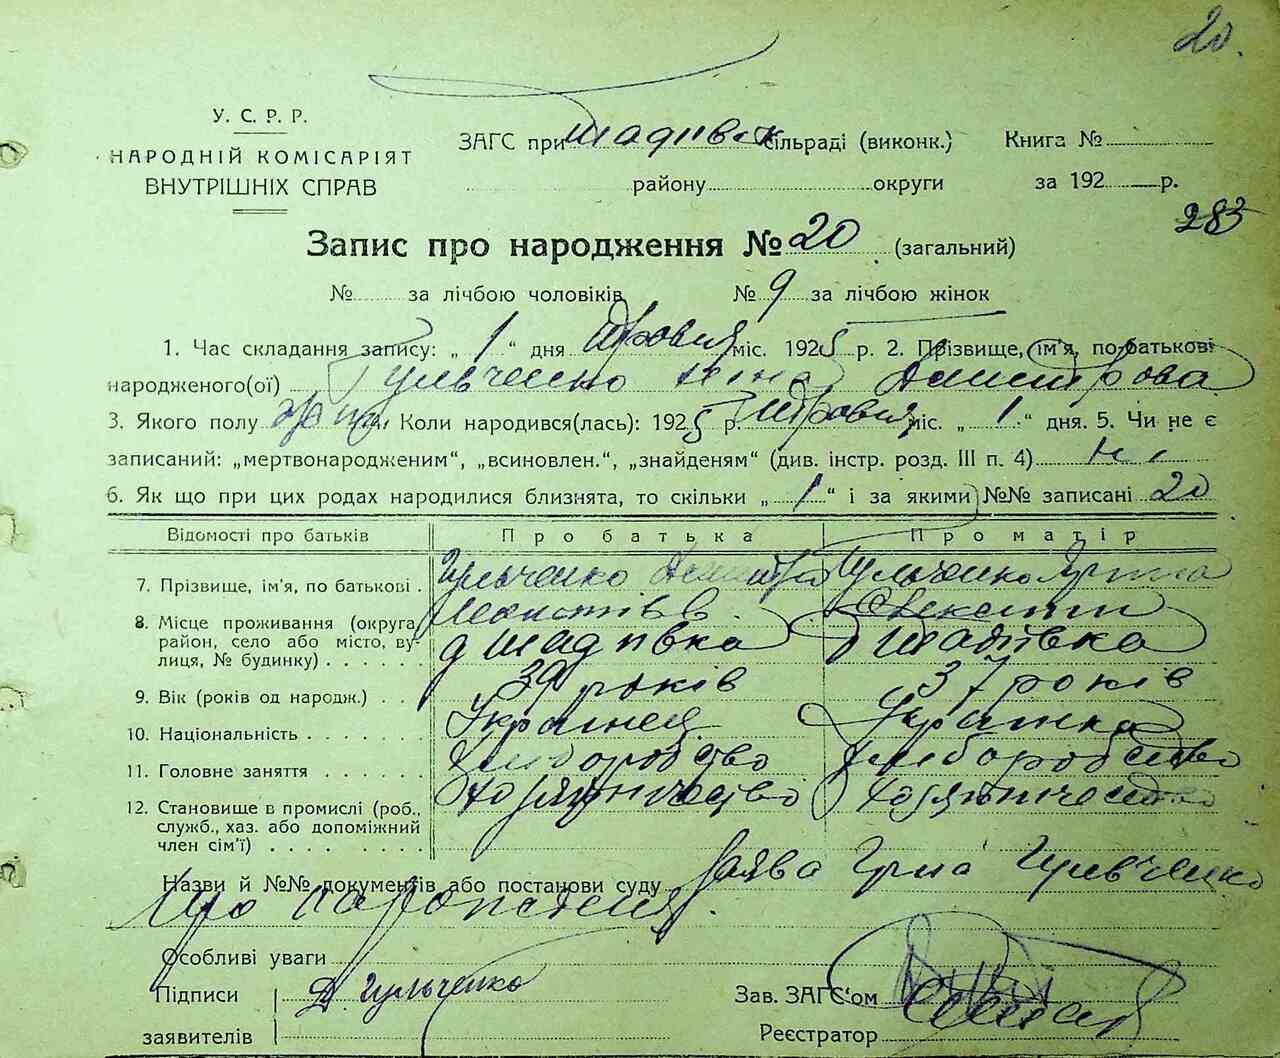 20.
У. С. Р. Р.
НАРОДНІЙ КОМІСАРІЯТ
ВНУТРІШНІХ СПРАВ
ЗАГС при сільраді (виконк.) Книга №
району округи за 192 р.
283
Запис про народження № 20 (загальний)
№ за лічбою чоловіків № 9 за лічбою жінок
1. Час складання запису: „ 1 “ дня міс. 1925 р. 2. Прізвище, ім'я, по батькові
народженого(ої) Гульченко Ніна Дмитрова
3. Якого полу Коли народився(лась): 1925 р. міс. „ 1 “ дня. 5. Чи не є
записаний: „мертвонародженим“, „всиновлен.“, „знайденям“ (див. інстр. розд. III п. 4) ні
6. Як що при цих родах народилися близнята, то скільки „ 1 “ і за якими №№ записані 20
Відомості про батьків Про батька Про матір
7. Прізвище, ім'я, по батькові . Гульченко Дмитро Гульченко
8. Місце проживання (округа,
район, село або місто, ву-
лиця, № будинку) . . . . . .
9. Вік (років од народж.) . . 39 років 37 років
10. Національність . . . . . . . Українец Українка
11. Головне заняття . . . . . . хлиборобство хлиборобство
12. Становище в промислі (роб.,
служб., хаз. або допоміжний
член сім'ї) . . . . . . . .
Назви й №№ документів або постанови суду Заява Гульченко
Про
Особливі уваги
Підписи Д. Гульченко Зав. ЗАГС'ом
заявителів Реєстратор